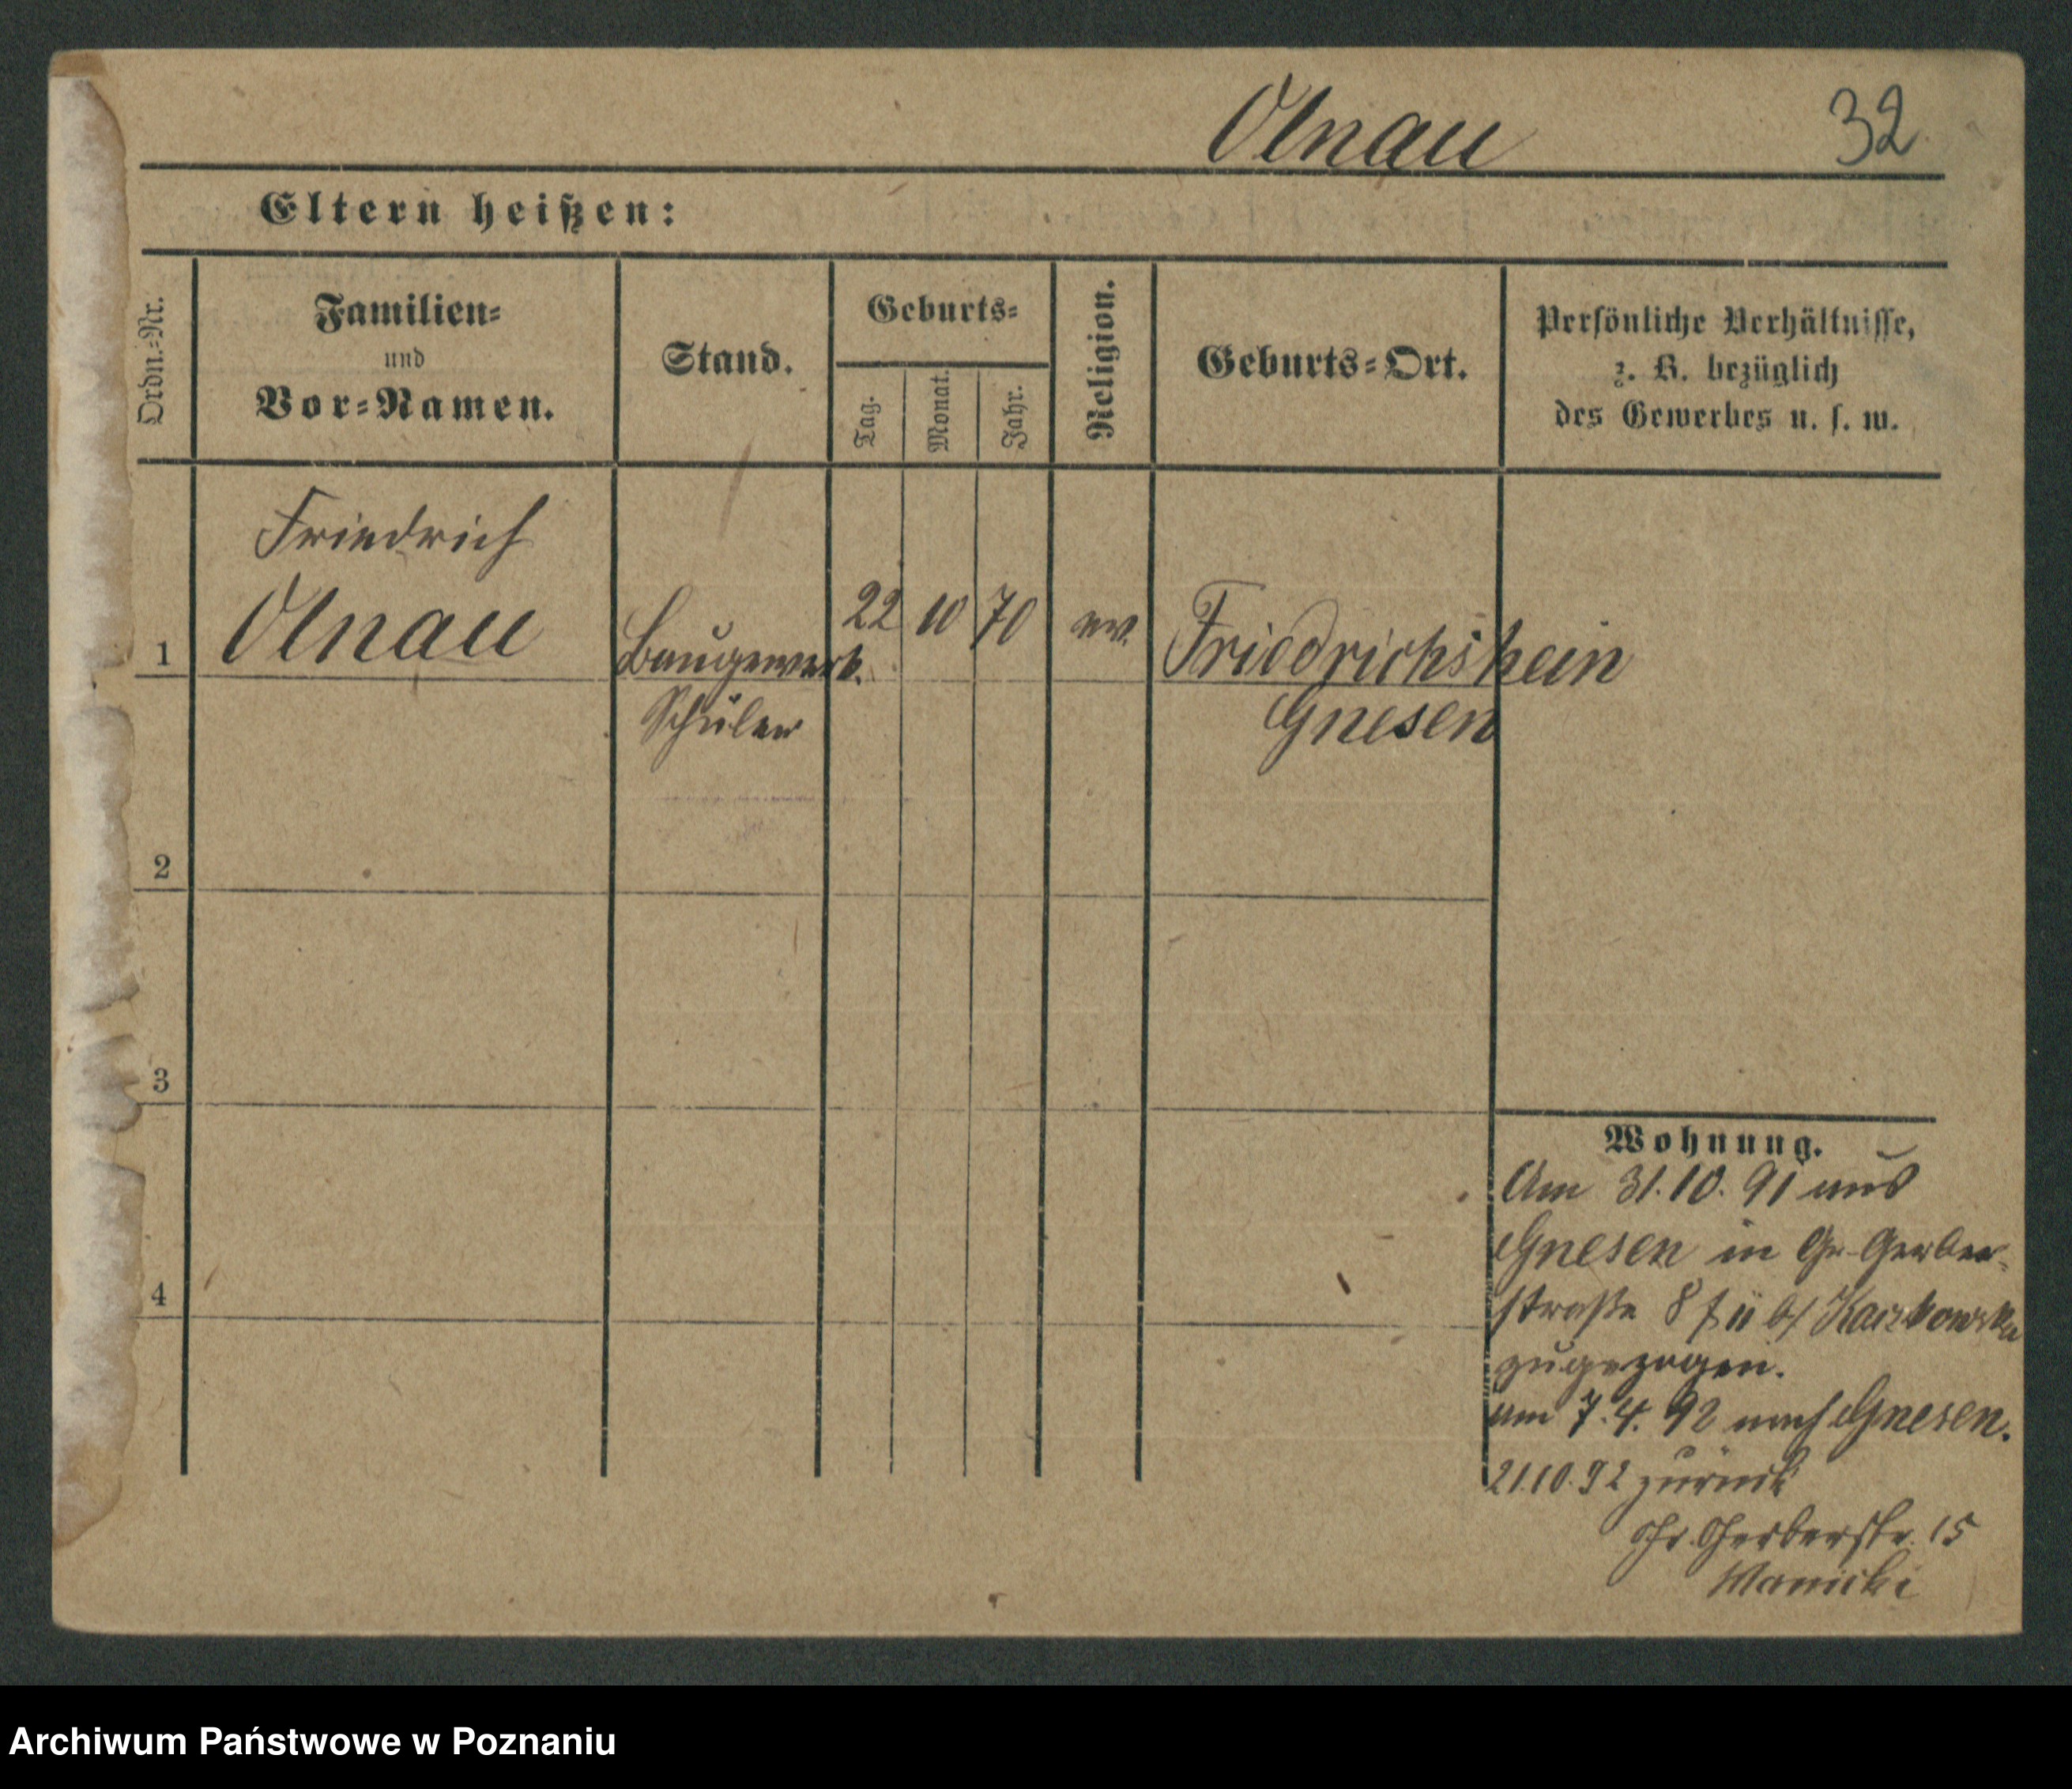 Olnau 32
Eltern heißen:
Ordn.-Nr.
Familien-
und
Vor-Namen.
Stand.
Geburts-
Tag.
Monat.
Jahr.
Religion.
Geburts-Ort.
Persönliche Verhältnisse,
z. B. bezüglich
des Gewerbes u. s. w.
Friedrich
1 Olnau Baugewerk. 22 10 70 ev. Friedrichshein
Schüler Gnesen
2
3
4
Wohnung.
Am 31.10.91 aus
Gnesen in Gr. Gerber-
straße 8 Kaczkowska
zugezogen.
am 7.4.92 nach Gnesen.
21.10.92 zurück
Gr. Gerberstr. 15
Wanicki
Archiwum Państwowe w Poznaniu